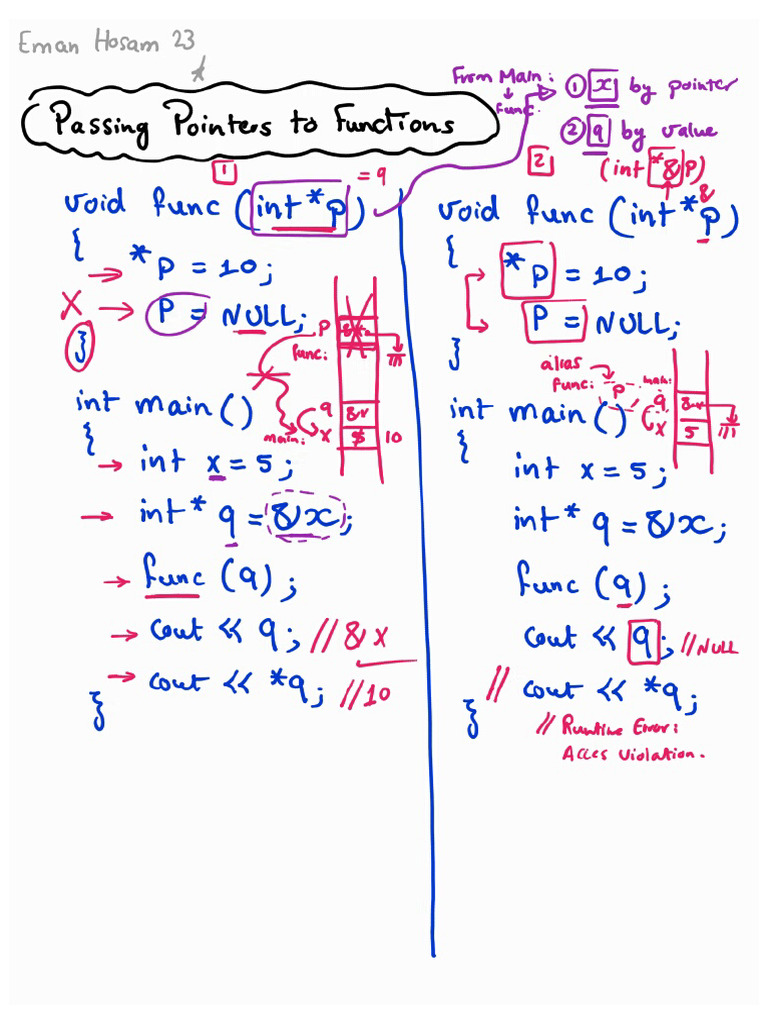 Eman Hosam 23
Passing Pointers to Functions
From Main:
Func.
① x by pointer
② q by value
1
= q
void func (int *p)
{
*p = 10;
X
P = NULL;
}
P &x
func:
q &x
main: x 5 10
int main()
{
int x = 5;
int* q = &x;
func (q);
cout << q; // &x
cout << *q; //10
}
2
(int *& p)
&
void func (int *p)
{
*p = 10;
P = NULL;
}
alias
func: P main:
q &x
x 5
int main()
{
int x = 5;
int* q = &x;
func (q);
cout << q; //NULL
// cout << *q;
}
// Runtime Error:
Acces Violation.